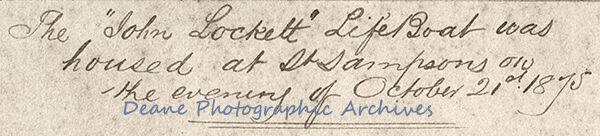 The "John Lockett" LifeBoat was
housed at St Sampsons on
the evening of October 21st. 1875
Deane Photographic Archives